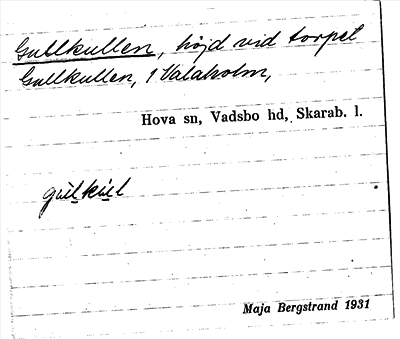 Gullkullen, höjd vid torpet
Gullkullen, 1 Valaholm,
Hova sn, Vadsbo hd, Skarab. l.
Maja Bergstrand 1931